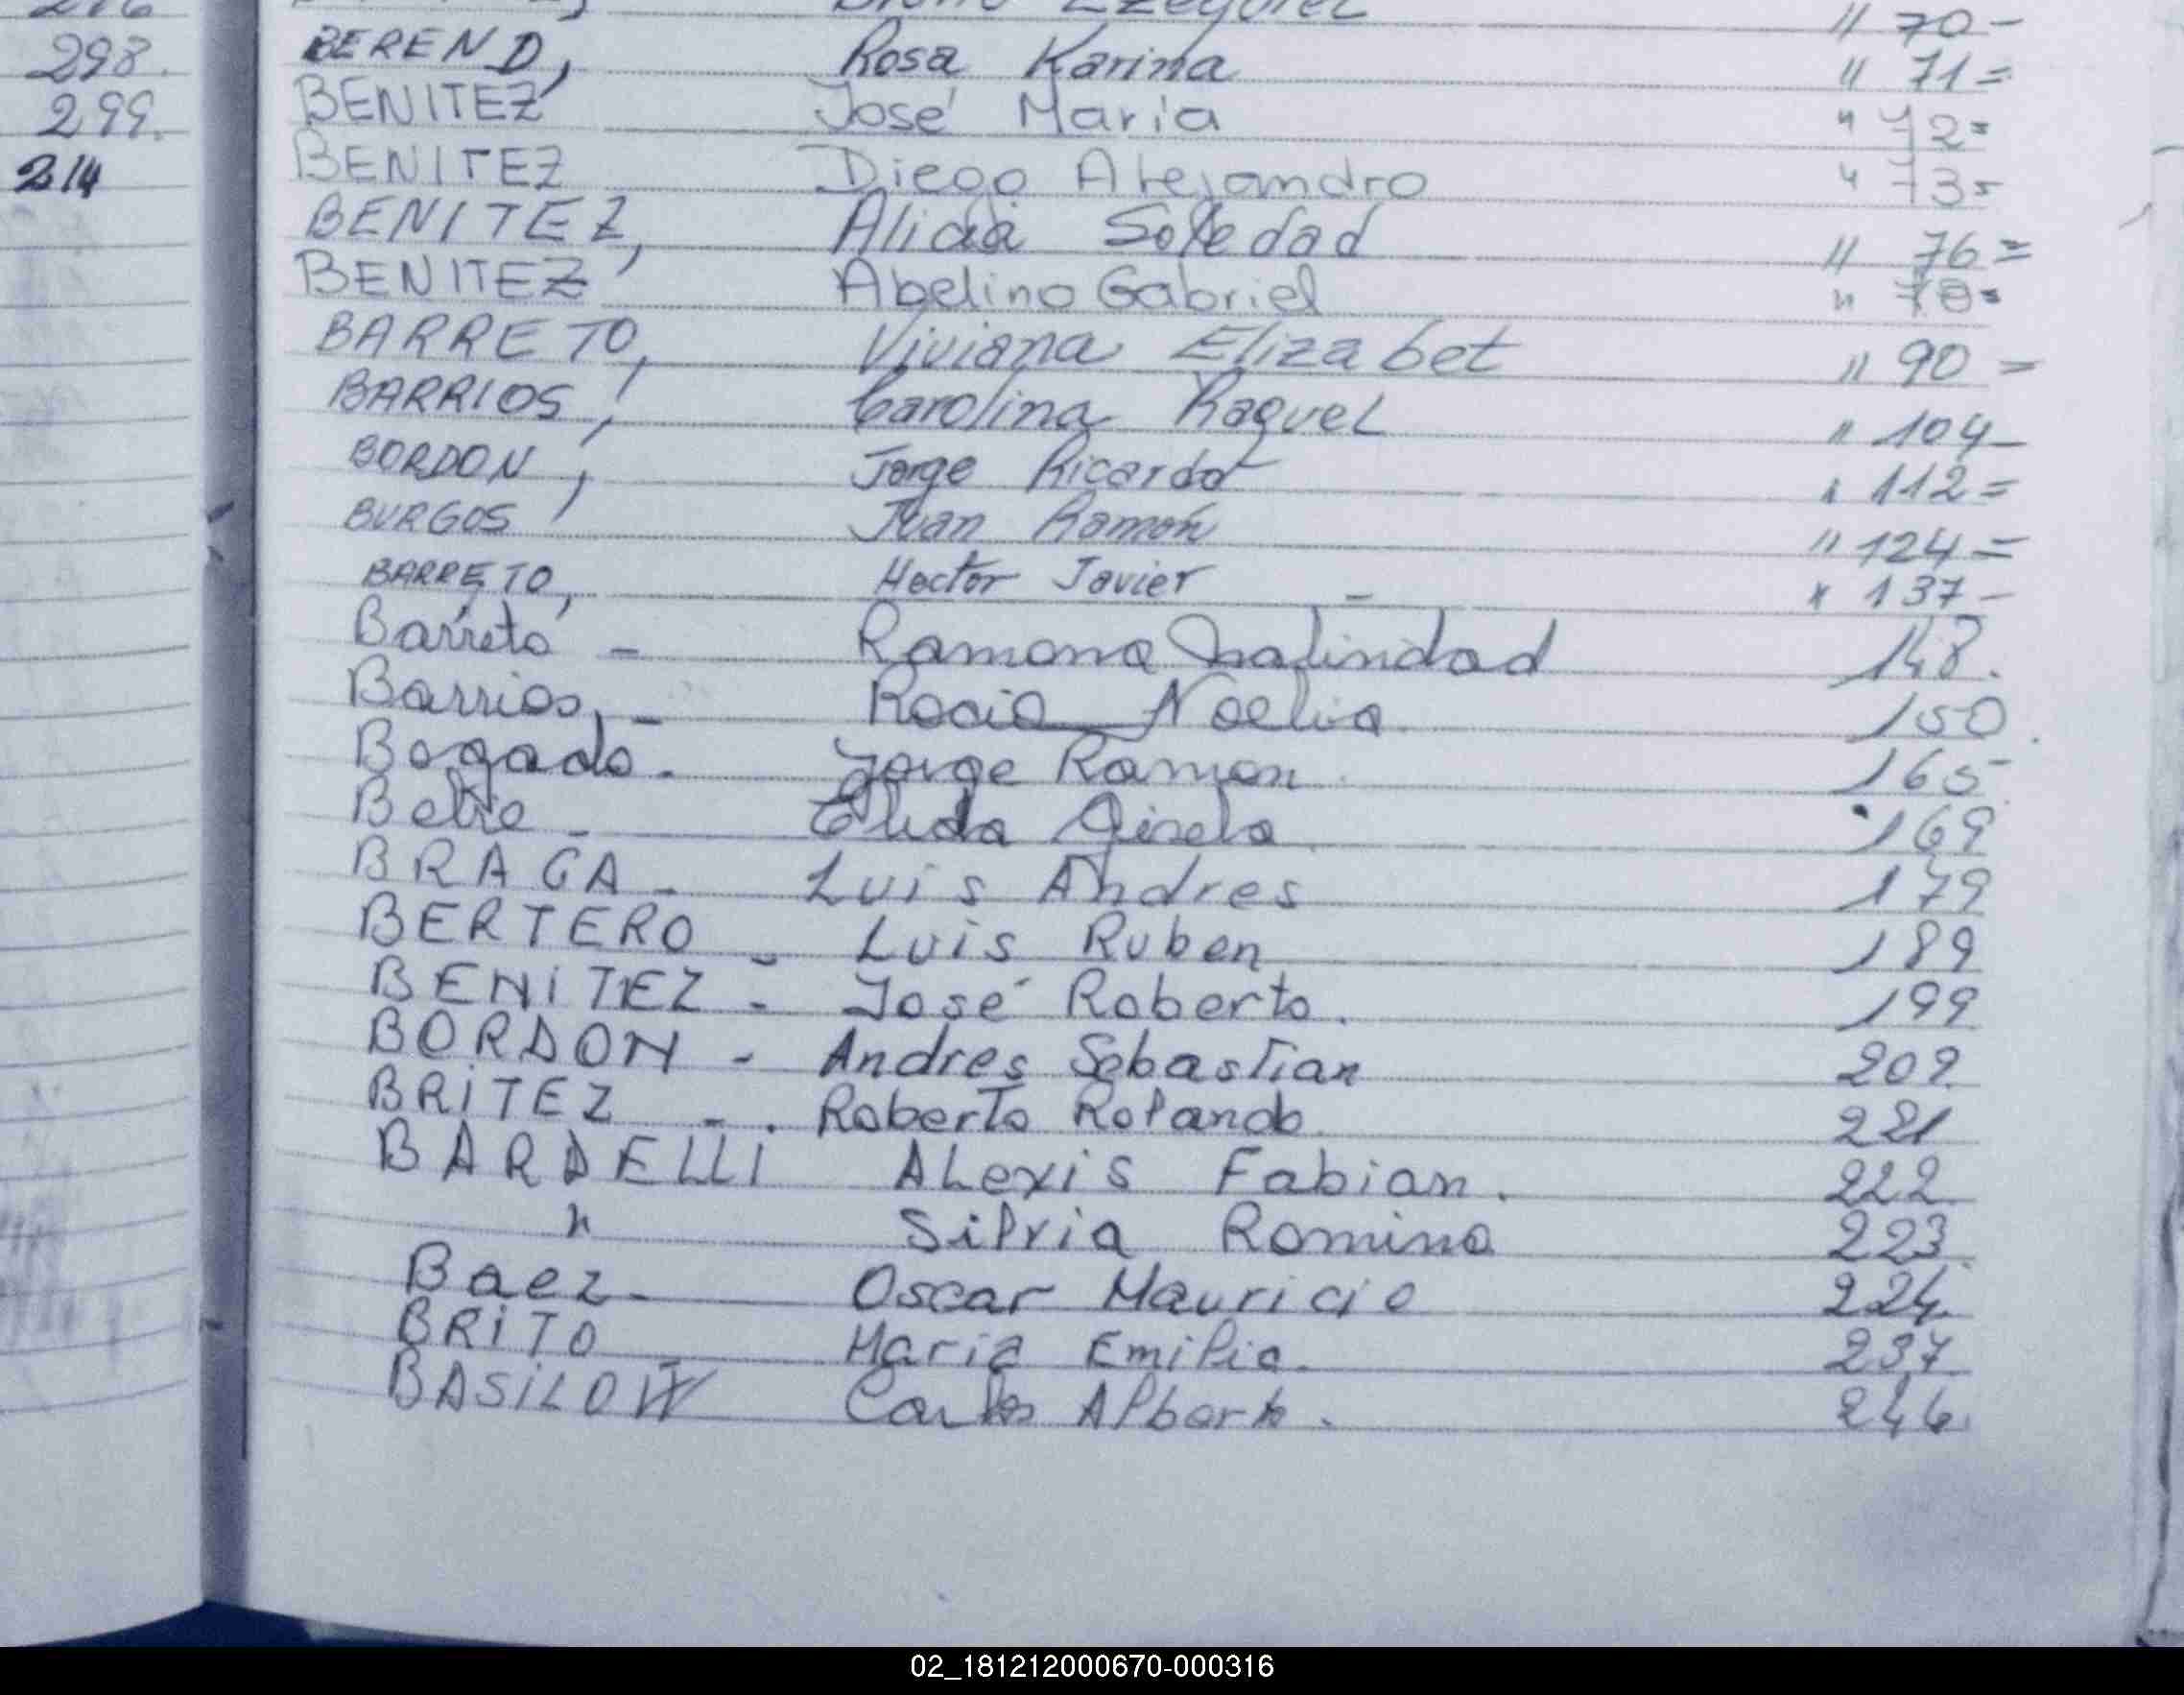 Ezequiel " 70 -
298.
299.
214
BEREND, Rosa Karina " 71 =
BENITEZ, José Maria " 72 =
BENITEZ Diego Alejandro " 73 =
BENITEZ, Alicia Soledad " 76 =
BENITEZ Abelino Gabriel " 78 =
BARRETO, Viviana Elizabet " 90 =
BARRIOS, Carolina Raquel " 104 -
BORDON, Jorge Ricardo " 112 =
BURGOS Juan Ramón " 124 =
BARRETO, Hector Javier - " 137 -
Barreto - Ramona 148.
Barrios, - Rocio Noelia 150
Bogado. Jorge Ramon 165
Elida Gisela 169
BRAGA - Luis Andres 179
BERTERO - Luis Ruben 189
BENITEZ - José Roberto. 199
BORDON - Andres Sebastian 202
BRITEZ - . Roberto Rolando. 221
BARDELLI Alexis Fabian. 222
" Silvia Romina 223
Baez - Oscar Mauricio 224.
BRITO Maria Emilia. 237
BASILOW Carlos Alberto. 246.
02_181212000670-000316